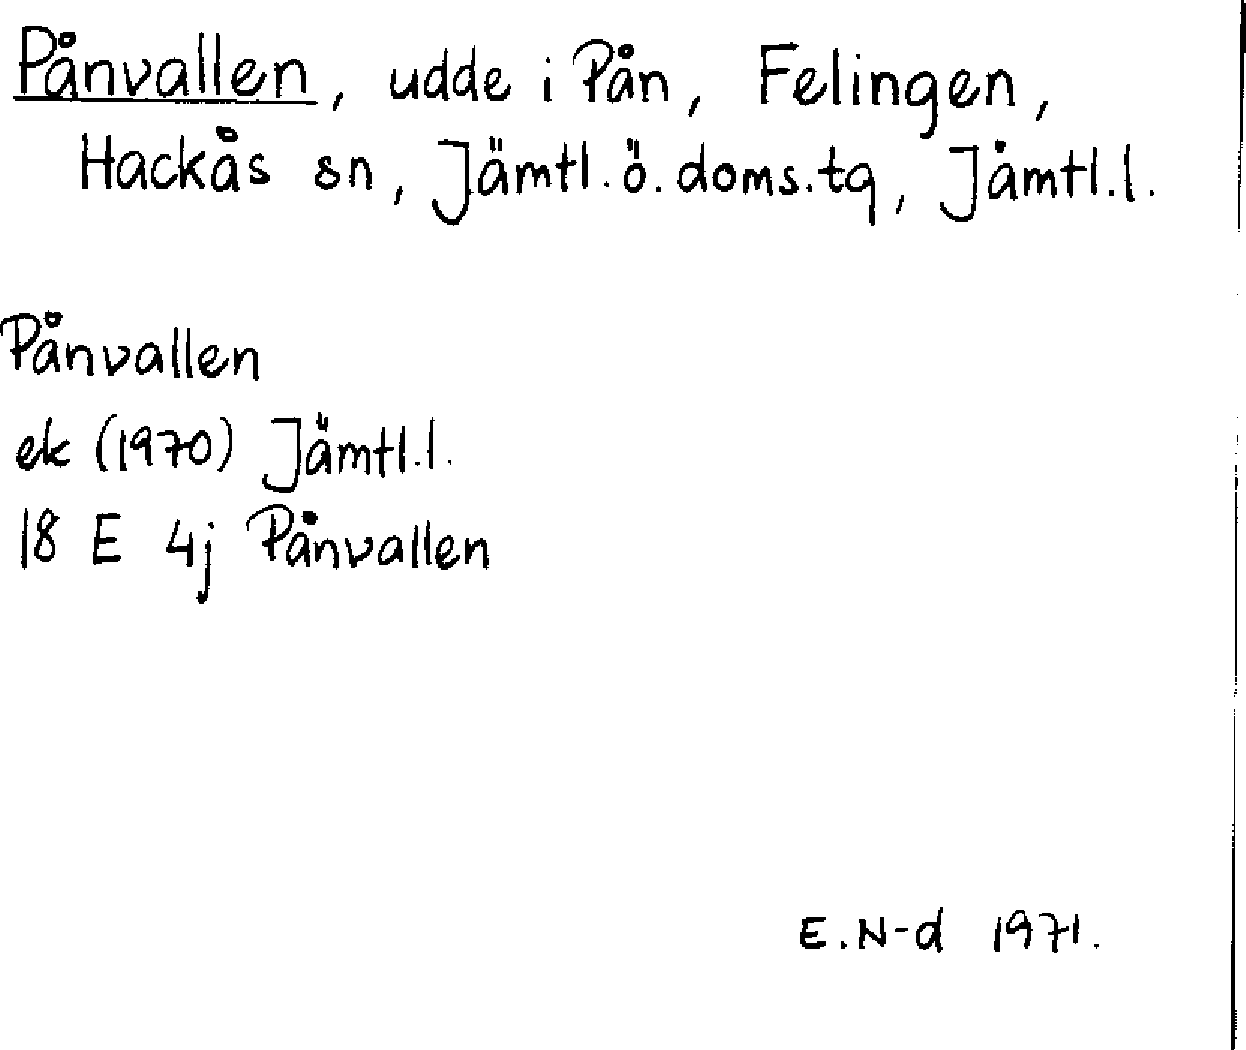 Pånvallen, udde i Pån, Felingen,
Hackås sn, Jämtl. ö. doms. tg, Jämtl. l.
Pånvallen
ek (1970) Jämtl. l.
18 E 4j Pånvallen
E. N-d 1971.